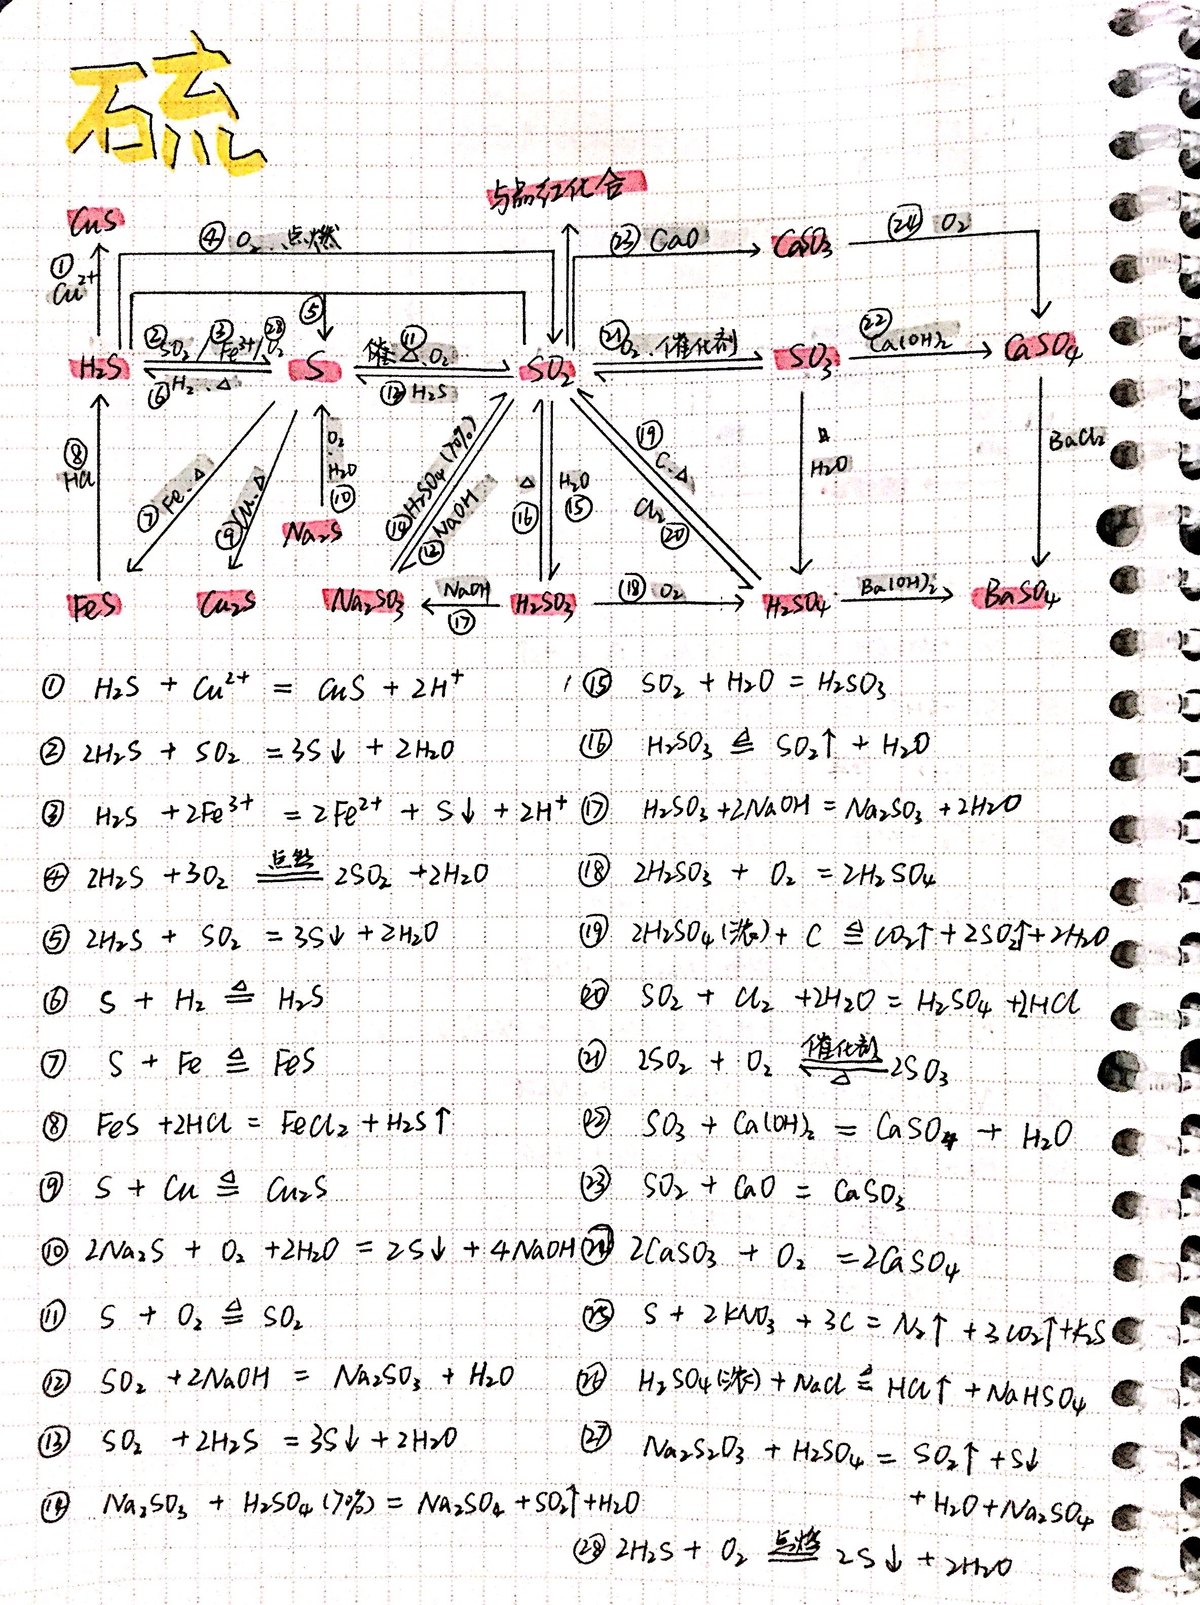 硫
与品红化合
CuS
④ O₂、点燃
㉓ CaO
CaSO₃
㉔ O₂
① Cu²⁺
⑤
② SO₂ / ③ Fe³⁺ / ㉘ O₂
催 △ ⑪ O₂
㉑ O₂、催化剂
㉒ Ca(OH)₂
H₂S
S
SO₂
SO₃
CaSO₄
⑥ H₂、△
⑬ H₂S
⑧ HCl
⑦ Fe、△
⑨ Cu、△
O₂ H₂O ⑩
Na₂S
⑭ H₂SO₄(70%)
⑫ NaOH
△ ⑯
H₂O ⑮
⑲ C、△
Cl₂ ⑳
H₂O
BaCl₂
FeS
Cu₂S
Na₂SO₃
NaOH ⑰
H₂SO₃
⑱ O₂
H₂SO₄
Ba(OH)₂
BaSO₄
① H₂S + Cu²⁺ = CuS + 2H⁺
② 2H₂S + SO₂ = 3S↓ + 2H₂O
③ H₂S + 2Fe³⁺ = 2Fe²⁺ + S↓ + 2H⁺
④ 2H₂S + 3O₂ 点燃 2SO₂ + 2H₂O
⑤ 2H₂S + SO₂ = 3S↓ + 2H₂O
⑥ S + H₂ ≜ H₂S
⑦ S + Fe ≜ FeS
⑧ FeS + 2HCl = FeCl₂ + H₂S↑
⑨ S + Cu ≜ Cu₂S
⑩ 2Na₂S + O₂ + 2H₂O = 2S↓ + 4NaOH
⑪ S + O₂ ≜ SO₂
⑫ SO₂ + 2NaOH = Na₂SO₃ + H₂O
⑬ SO₂ + 2H₂S = 3S↓ + 2H₂O
⑭ Na₂SO₃ + H₂SO₄(70%) = Na₂SO₄ + SO₂↑ + H₂O
⑮ SO₂ + H₂O = H₂SO₃
⑯ H₂SO₃ ≜ SO₂↑ + H₂O
⑰ H₂SO₃ + 2NaOH = Na₂SO₃ + 2H₂O
⑱ 2H₂SO₃ + O₂ = 2H₂SO₄
⑲ 2H₂SO₄(浓) + C ≜ CO₂↑ + 2SO₂↑ + 2H₂O
⑳ SO₂ + Cl₂ + 2H₂O = H₂SO₄ + 2HCl
㉑ 2SO₂ + O₂ 催化剂 △ 2SO₃
㉒ SO₃ + Ca(OH)₂ = CaSO₄ + H₂O
㉓ SO₂ + CaO = CaSO₃
㉔ 2CaSO₃ + O₂ = 2CaSO₄
㉕ S + 2KNO₃ + 3C = N₂↑ + 3CO₂↑ + K₂S
㉖ H₂SO₄(浓) + NaCl ≜ HCl↑ + NaHSO₄
㉗ Na₂S₂O₃ + H₂SO₄ = SO₂↑ + S↓
+ H₂O + Na₂SO₄
㉘ 2H₂S + O₂ 点燃 2S↓ + 2H₂O